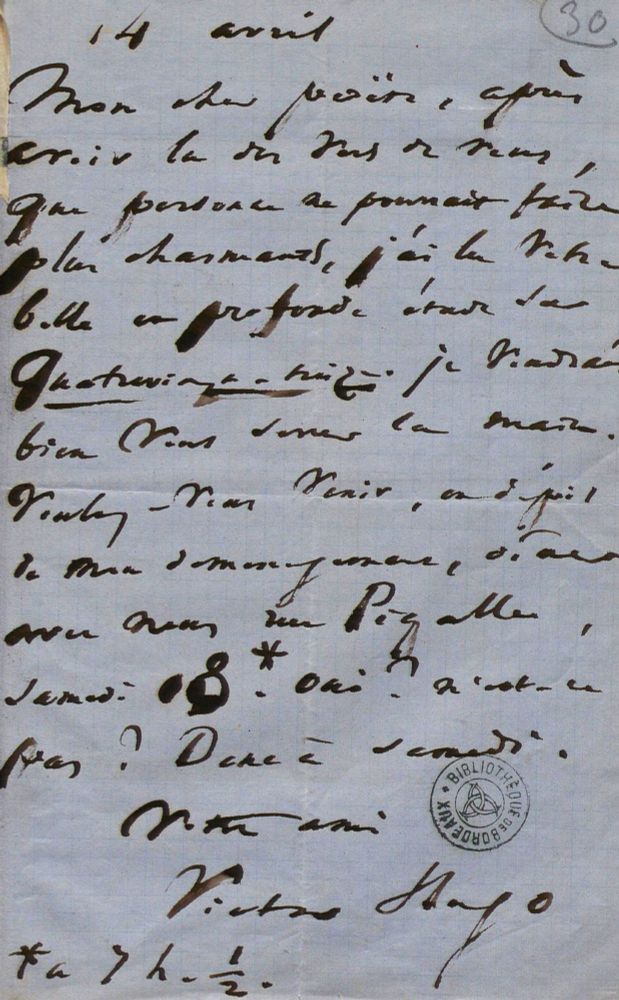 30
14 avril
Mon cher poëte, après
avoir lu des vers de vous,
que personne ne pourrait faire
plus charmants, j'ai lu votre
belle et profonde étude sur
Quatrevingt-treize. je voudrais
bien vous serrer la main.
Voulez-vous venir, en dépit
de mon déménagement, dîner
avec nous rue Pigalle,
samedi 18*. Oui? n'est-ce
pas? Donc à samedi.
Votre ami
Victor Hugo
*à 7 h. 1/2.
BIBLIOTHÈQUE DE BORDEAUX